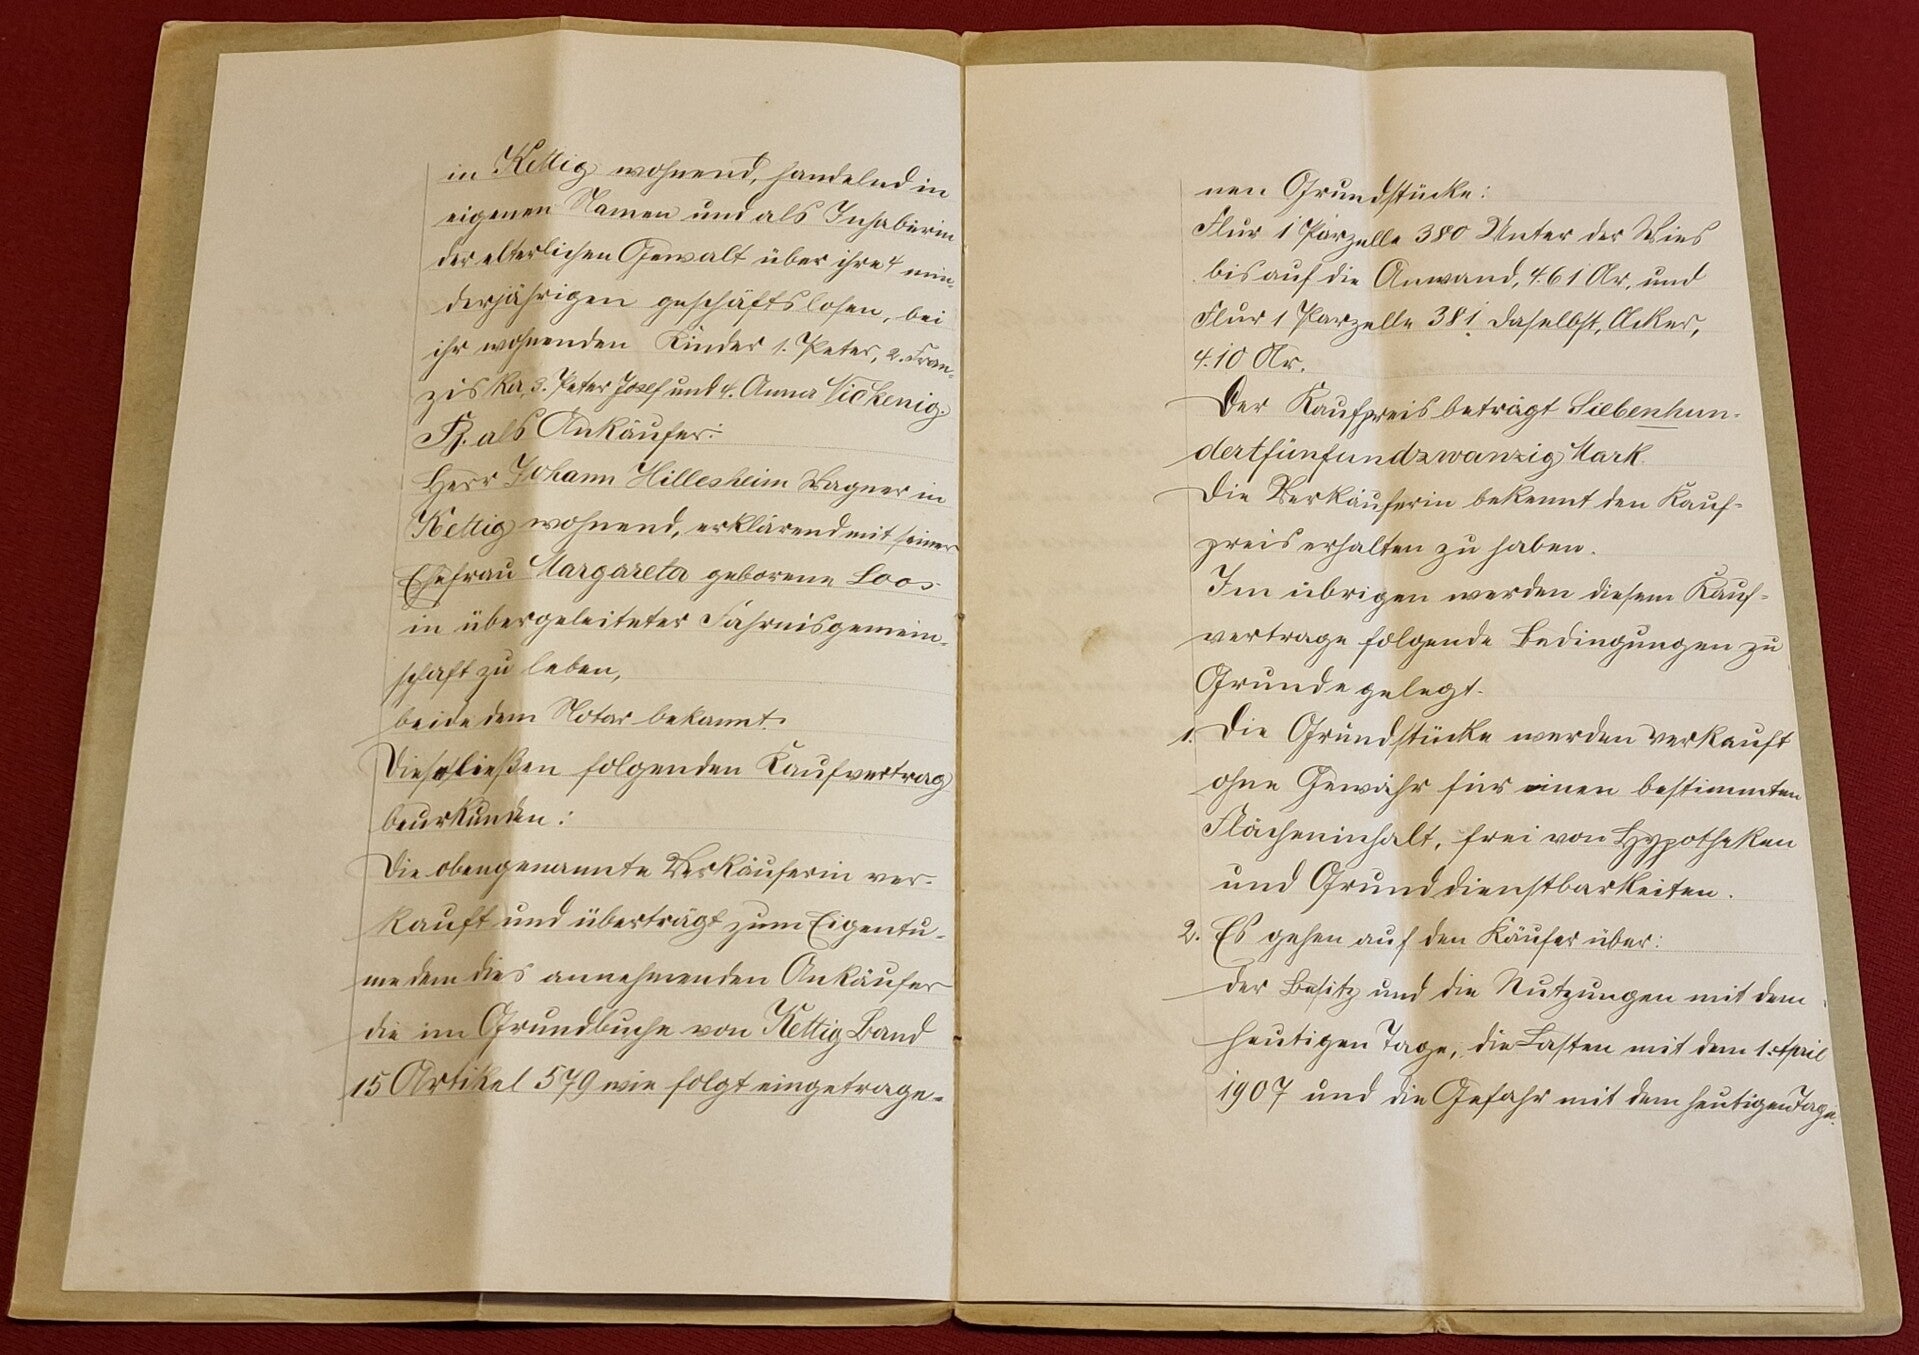 in Kettig wohnend, handelnd in
eigenen Namen und als Inhaberin
der elterlichen Gewalt über ihre 4 min-
derjährigen geschäftslosen, bei
ihr wohnenden Kinder 1. Peter, 2. Fran-
ziska, 3. Peter Josef und 4. Anna Vickenig.
II. als Ankäufer:
Herr Johann Hillesheim Wagner in
Kettig wohnend, erklärend mit seiner
Ehefrau Margareta geborene Loos
in übergeleiteter Fahrnisgemein-
schaft zu leben,
beide dem Notar bekannt.
Diese ließen folgenden Kaufvertrag
beurkunden:
Die obengenannte Verkäuferin ver-
kauft und überträgt zum Eigentu-
me dem dies annehmenden Ankäufer
die im Grundbuche von Kettig Band
15 Artikel 579 wie folgt eingetrage-
nen Grundstücke:
Flur 1 Parzelle 380 Unter der Wies
bis auf die Anwand, 4.61 Ar, und
Flur 1 Parzelle 381 daselbst, Acker,
4.10 Ar.
Der Kaufpreis beträgt Siebenhun-
dertfünfundzwanzig Mark.
Die Verkäuferin bekennt den Kauf-
preis erhalten zu haben.
Im übrigen werden diesem Kauf-
vertrage folgende Bedingungen zu
Grunde gelegt.
1. Die Grundstücke werden verkauft
ohne Gewähr für einen bestimmten
Flächeninhalt, frei von Hypotheken
und Grunddienstbarkeiten.
2. Es gehen auf den Käufer über:
der Besitz und die Nutzungen mit dem
heutigen Tage, die Lasten mit dem 1. April
1907 und die Gefahr mit dem heutigen Tage.